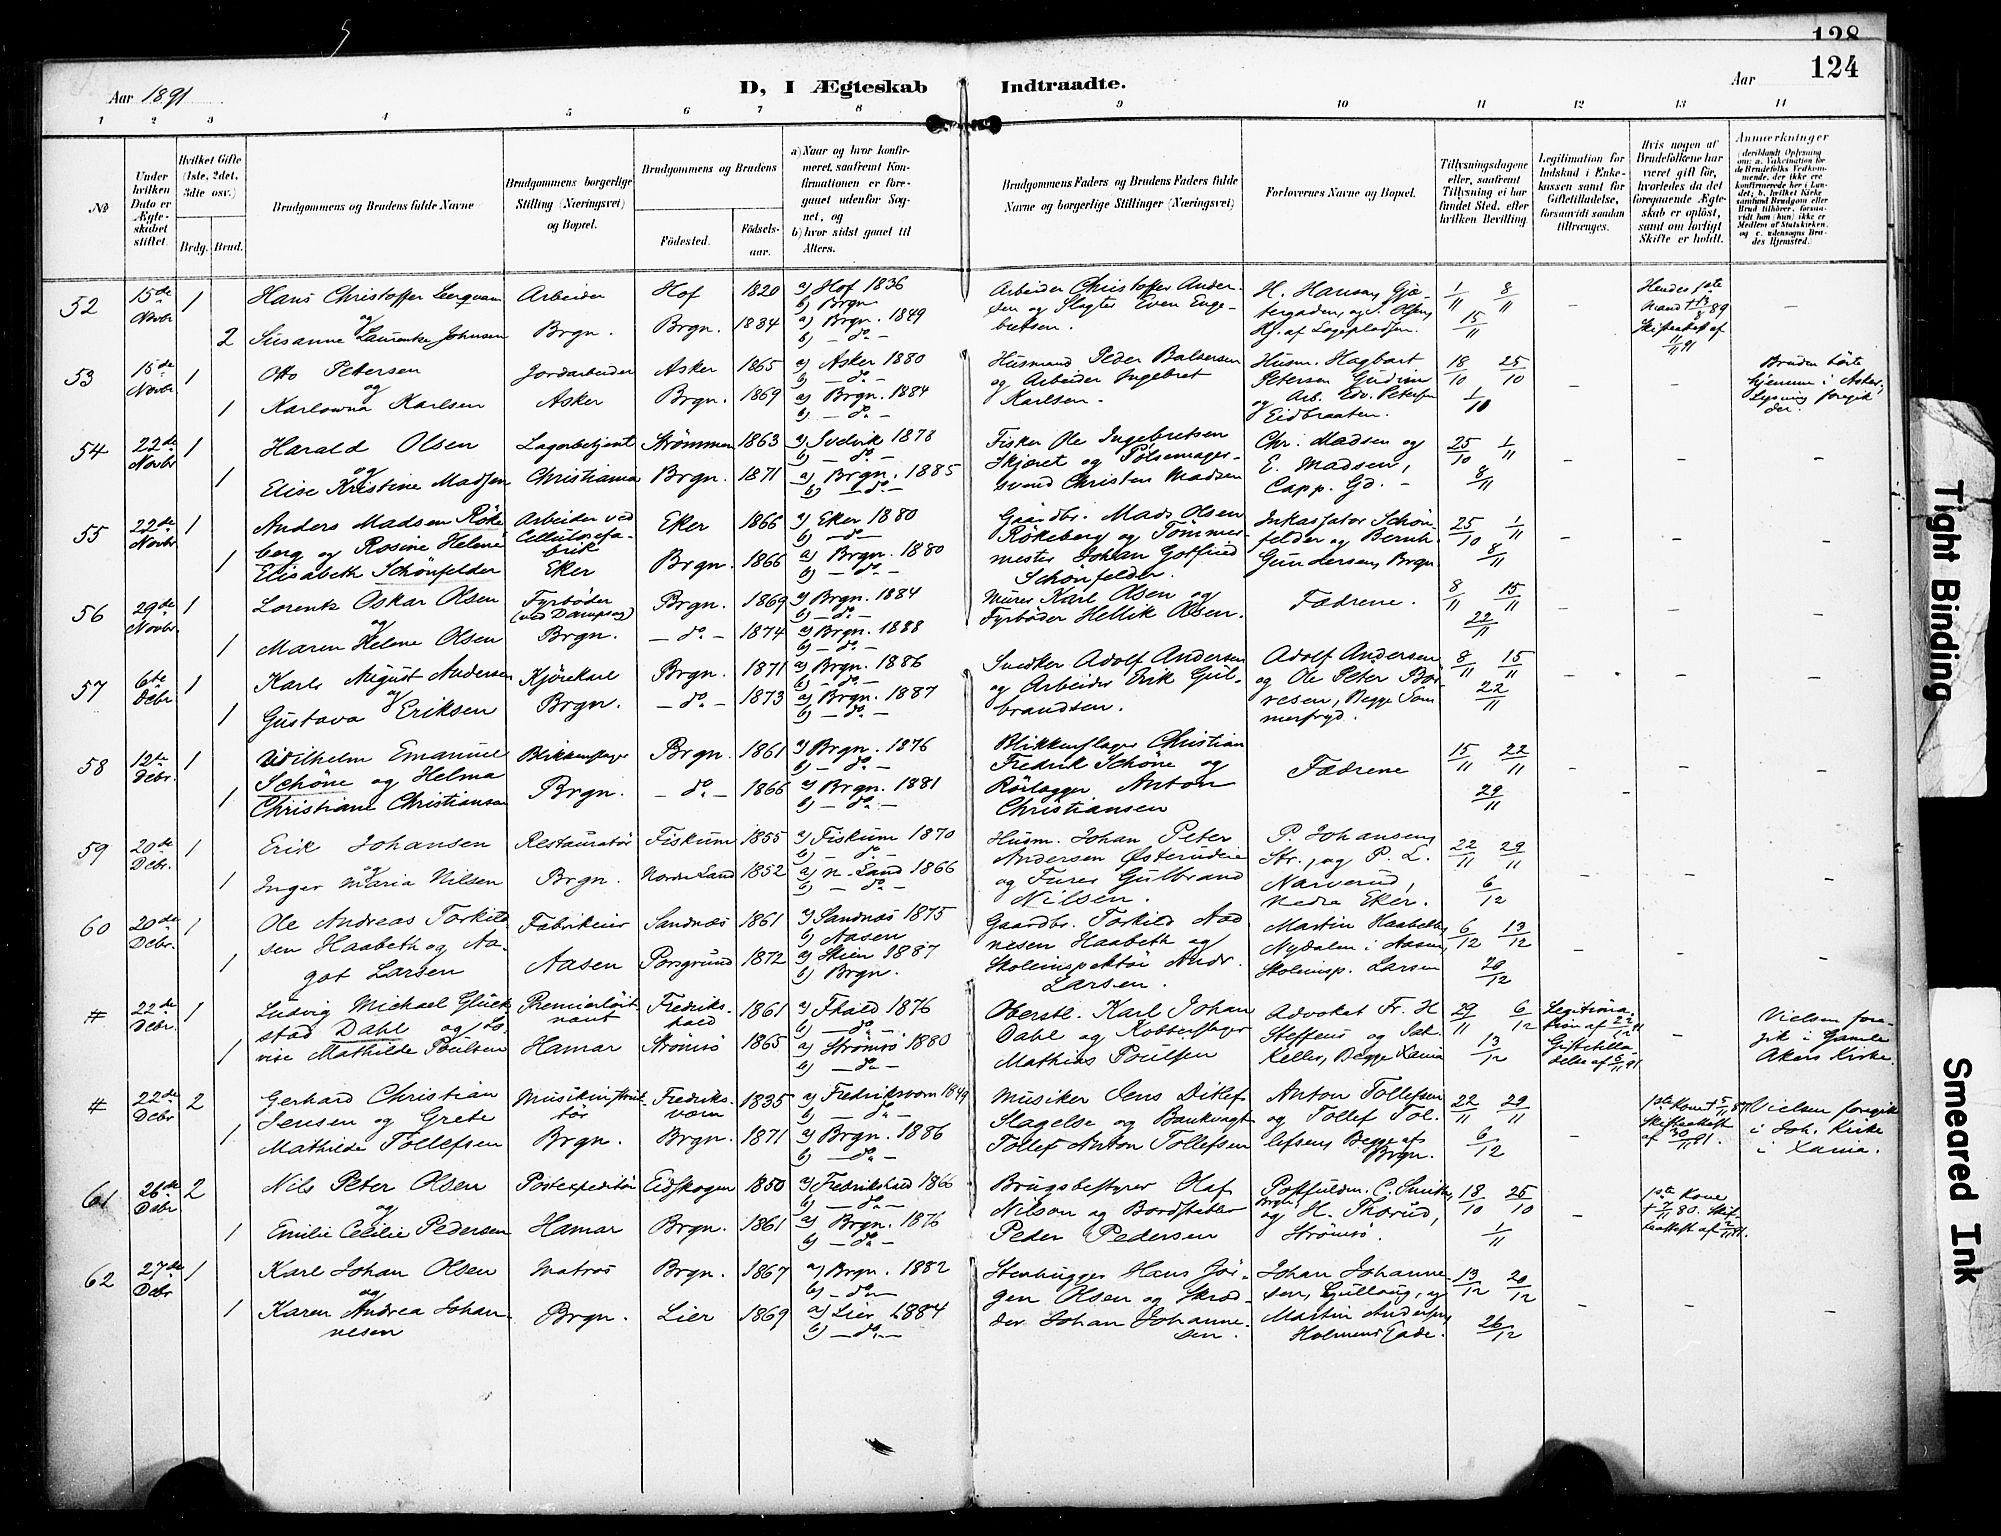 128
124
Aar 1891
D, I Ægteskab Indtraadte.
Aar
1 2 3 4 5 6 7 8 9 10 11 12 13 14
No
Under hvilken Dato er Ægteskabet stiftet.
Hvilket Gifte (1ste, 2det, 3die osv.)
Brdg. Brud.
Brudgommens og Brudens fulde Navne
Brudgommens borgerlige Stilling (Næringsvei) og Bopæl.
Brudgommens og Brudens
Födested.
Födselsaar.
a) Naar og hvor konfirmeret, saafremt Konfirmationen er foregaaet udenfor Sognet, og
b) hvor sidst gaaet til Alters.
Brudgommens Faders og Brudens Faders fulde Navne og borgerlige Stillinger (Næringsvei)
Forlovernes Navne og Bopæl.
Tillysningsdagene eller, saafremt Tillysning ei har fundet Sted, efter hvilken Bevilling.
Legitimation for Indskud i Enkekassen samt for Giftetilladelse, forsaavidt saadan tiltrænges.
Hvis nogen af Brudefolkene har været gift för, hvorledes da det foregaaende Ægteskab er oplöst, samt om lovligt Skifte er holdt.
Anmærkninger
52 15de Novbr 1 Hans Christoffer Arbeider Hof 1820 a) Hof 1836 b) Brgn.
og
2 Susanne Laurentze Johnsen Brgn. Brgn. 1834 a) Brgn. 1849 b) — do —
Arbeider Christoffer Andersen og Slagter Even Engebretsen.
H. Hansen,
1/11 8/11 15/11
Hendes 1ste Mand † 13/8 89 Skifteattest af 11/11 91
53 15de Novbr. 1 Otto Petersen Jordarbeider Asker 1865 a) Asker 1880 b) — do —
og
1 Karlowna Karlsen Asker Brgn. 1869 a) Brgn. 1884 b) — do —
Husmand Peder Balsersen og Arbeider Ingebret Karlsen.
Husm. Hagbart Petersen Gudim og Arb. Edv. Petersen Eidbraaten.
18/10 25/10 1/10
Bruden hørte hjemme i Asker, Lysning foregik der.
54 22de Novbr 1 Harald Olsen Lagerbetjent Strømmen 1863 a) Svelvik 1878 b) — do —
og
1 Elise Kristine Madsen Christiania Brgn. 1871 a) Brgn. 1885 b) — do —
Fisker Ole Ingebretsen Skjæret og Pølsemagersvend Christen Madsen
Chr. Madsen og E. Madsen, Capp. Gd. —
25/10 1/11 8/11
55 22de Novbr 1 Anders Madsen Røkeberg og Rosine Helene Arbeider ved Cellulosefabrik Eker 1866 a) Eker 1880 b) — do —
1 Elisabeth Schönfelder Eker Brgn. 1866 a) Brgn. 1880 b) — do —
Gaardbr. Mads Olsen Rökeberg og Tømmermester Johan Gotfried Schönfelder.
Inkassator Schönfelder og Bernh. Gundersen, Brgn
25/10 1/11 8/11
56 29de Novbr. 1 Lorentz Oskar Olsen Fyrbøder (ved Dampsag) Brgn. 1869 a) Brgn. 1884 b) — do —
og
1 Maren Helene Olsen Brgn. — do — 1874 a) Brgn. 1888 b) — do —
Murer Karl Olsen og Fyrbøder Hellik Olsen.
Fædrene.
8/11 15/11 22/11
57 6te Debr 1 Karl August Andersen Kjörekarl Brgn. 1871 a) Brgn. 1886 b) — do —
og
1 Gustava Eriksen Brgn. — do — 1873 a) Brgn. 1887 b) — do —
Snedker Adolf Andersen og Arbeider Erik Gulbrandsen.
Adolf Andersen og Ole Peter Børresen, Begge Sommerfryd.
8/11 15/11 22/11
58 12te Debr. 1 Vilhelm Emanuel Schöne og Helma Blikkenslager Brgn. 1861 a) Brgn. 1876 b) — do —
1 Christiane Christiansen Brgn. — do — 1866 a) Brgn. 1881 b) — do —
Blikkenslager Christian Fredrik Schöne og Rörlægger Anton Christiansen
Fædrene
15/11 22/11 29/11
59 20de Debr. 1 Erik Johansen Restauratør Fiskum 1855 a) Fiskum 1870 b) — do —
og
1 Inger Maria Nilsen Brgn. Nordre Land 1852 a) N. Land 1866 b) — do —
Husm. Johan Peter Andersen Østerudeie og Furer Gulbrand Nilsen.
P. Johansen, Str., og P. L. Narverud, Nedre Eker.
22/11 29/11 6/12
60 20de Debr. 1 Ole Andreas Torkildsen Haabeth og Aagot Larsen Fabrikeier Sandnæs 1861 a) Sandnæs 1875 b) Aasen
1 Aasen Porsgrund 1872 a) Skien 1887 b) Brgn.
Gaardbr. Torkild Aadnesen Haabeth og Skoleinspektör Andr. Larsen.
Martin Haabeth, Nydalen i Aasen, Skoleinsp. Larsen
6/12 13/12 20/12
# 22de Debr. 1 Ludvig Michael Glückstad Dahl og Lovise Mathilde Poulsen Premierlöitnant Fredrikshald 1861 a) Fhald 1876 b) — do —
1 Hamar Strömsö 1865 a) Strömsö 1880 b) — do —
Oberstl. Karl Johan Dahl og Kobberslager Mathias Poulsen
Advokat Fr. H. Steffens og Jak. Keller, Begge Xania
29/11 6/12 13/12
Legitimation af 22/12 91 Giftetilladelse af 5/11 91
Vielsen foregik i Gamle Akers Kirke.
# 22de Debr 2 Gerhard Christian Jensen og Grete Musikinstruktör Fredriksværn 1835 a) Fredriksværn 1849 b) — do —
1 Mathilde Tollefsen Brgn. Brgn. 1871 a) Brgn. 1886 b) — do —
Musiker Jens Ditlef Slagelse og Bankvagt Tollef Anton Tollefsen
Anton Tollefsen og Tollef Tollefsen, Begge af Brgn.
22/11 29/11 6/12
1ste Kone † 5/11 87. Skifteattest af 30/11 91.
Vielsen foregik i Joh. Kirke i Xania.
61 26de Debr 2 Nils Peter Olsen Postexpeditör Eidskogen 1850 a) Fredrikshald 1866 b) — do —
og
1 Emilie Cecilie Pedersen Hamar Brgn. 1861 a) Brgn. 1876 b) — do —
Brugsbestyrer Olaf Nilson og Bordstabler Peder Pedersen
Postfuldm. C. Smith, Brgn, og H. Thorud, Strömsö.
18/10 25/10 1/11
1ste Kone 80. Skifteattest af 2/11 91.
62 27de Debr 1 Karl Johan Olsen Matros Brgn. 1867 a) Brgn. 1882 b) — do —
og
1 Karen Andrea Johannesen Brgn. Lier 1869 a) Lier 1884 b) — do —
Stenhugger Hans Jörgen Olsen og Skrædder Johan Johannesen.
Johan Johannesen, Gullaug, og Martin Andersen, Holmens Gade.
13/12 20/12 26/12
Tight Binding
Smeared Ink